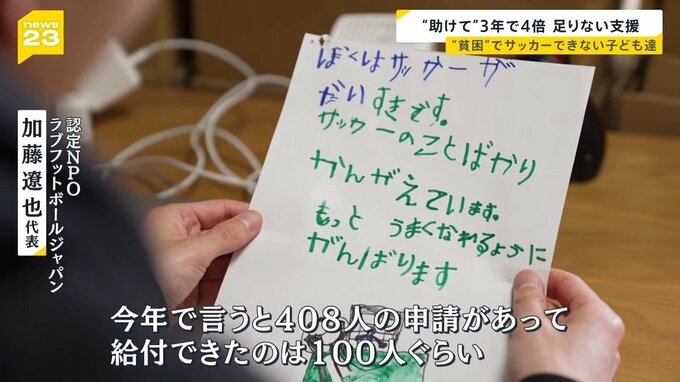 news
23
“助けて”3年で4倍 足りない支援
“貧困”でサッカーできない子ども達
認定NPO
ラブフットボールジャパン
加藤遼也 代表
ぼくはサッカーが
だいすきです。
サッカーのことばかり
かんがえています。
もっと うまくなれるように
がんばります
今年で言うと408人の申請があって
給付できたのは100人ぐらい